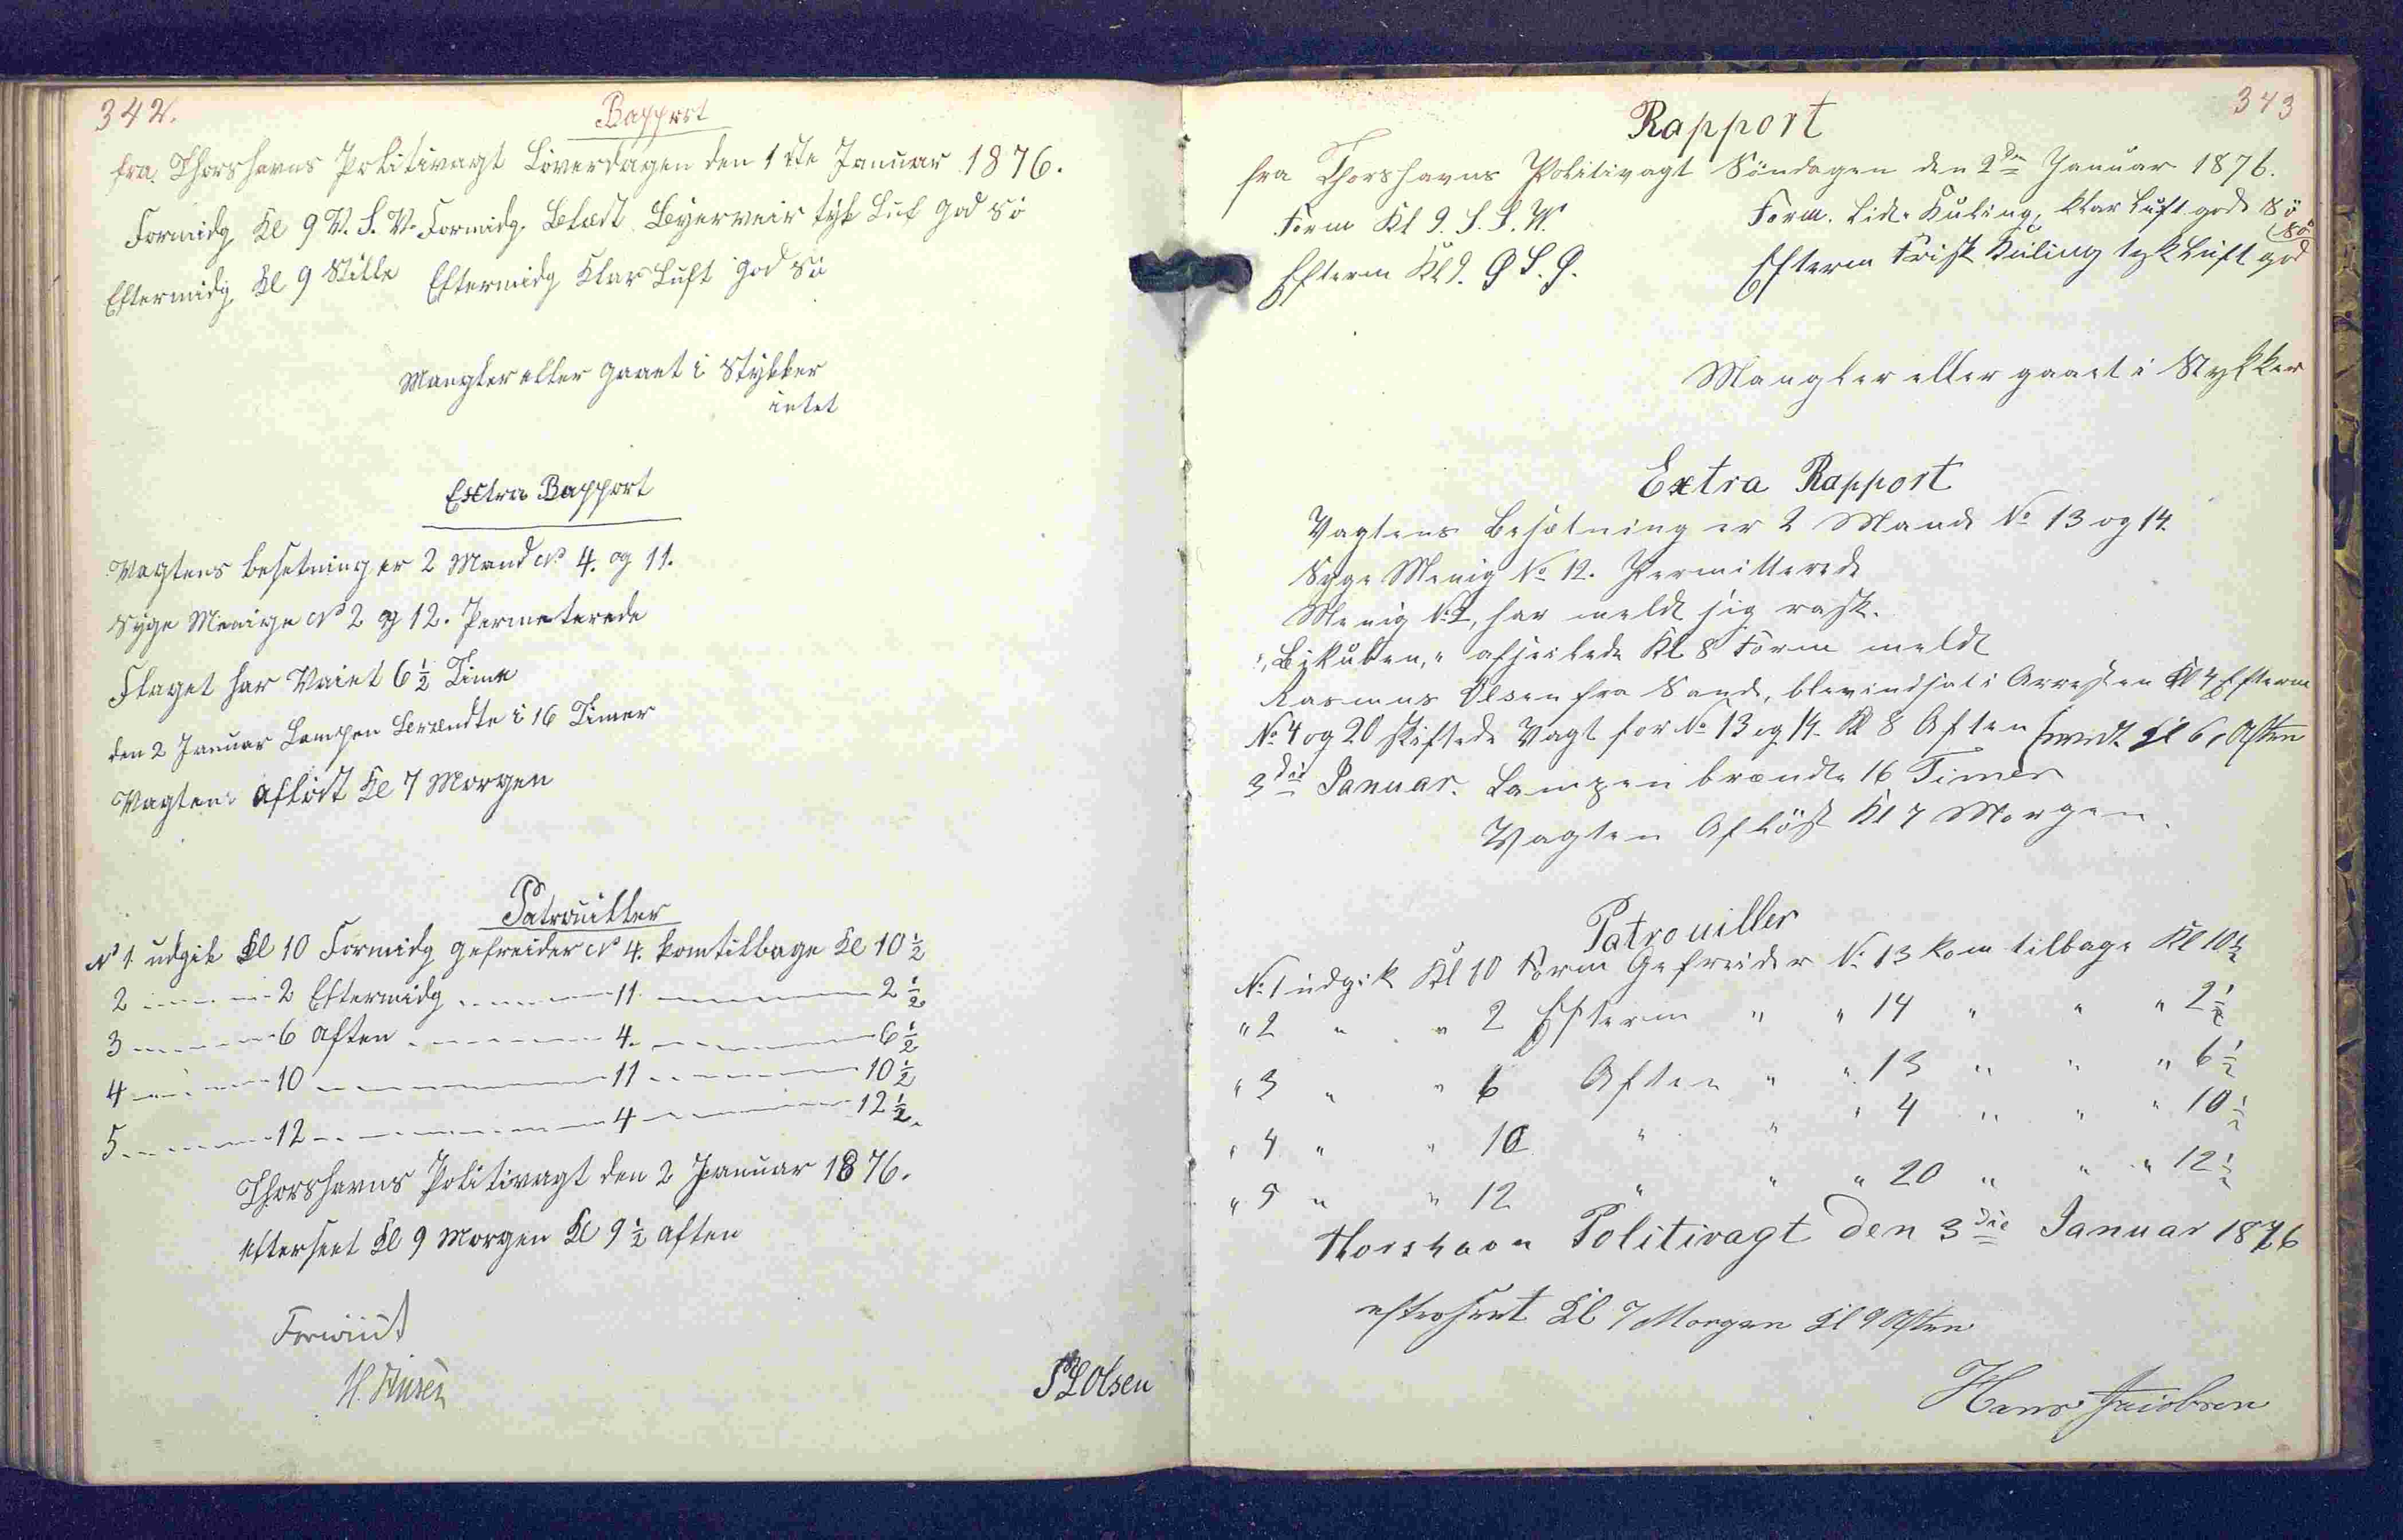 342.
Rapport
fra Thorshavns Politivagt Löverdagen den 1ste Januar 1876.
Formidg Kl 9 V. S. V. Formidg. Blæst Byerveir tyk Luft god Sö
Eftermidg Kl 9 Stille Eftermidg Klar Luft god Sö
Mangler eller gaaet i Stykker
intet
Extra Rapport
Vagtens besetning er 2 Mand No 4. og 11.
Syge Menige No 2 og 12. Permeterede
Flaget har Vaiet 6 1/2 Time
den 2 Januar Lampen Brændte i 16 Timer
Vagten aflöst Kl 7 Morgen
Patrouiller
N 1 udgik Kl 10 Formidg gefreider No 4. kom tilbage Kl 10 1/2
2 2 Eftermidg 11 2 1/2
3 6 Aften 4. 6 1/2
4 10 11 10 1/2
5 12 4 12 1/2.
Thorshavns Politivagt den 2 Januar 1876.
efterseet Kl 9 Morgen Kl 9 1/2 Aften
H.
Olsen
343
Rapport
fra Thorshavns Politivagt Söndagen den 2den Januar 1876.
Form Kl 9. S. S. W. Form. Lidt Kuling, klar Luft gode Sö
Efterm Kl 9. Ø S. Ø. Efterm Frisk Kuling tyk Luft god Sö
Mangler eller gaaet i Stykker
Extra Rapport
Vagtens Besætning er 2 Mand No 13 og 14
Syge Menig No 12. Permitterede
Menig No 2, har meldt sig rask.
"Bikuben," afseilede Kl 8 Form meldt
Rasmus Olsen fra Sand, blev indsat i Arresten Kl 4 Efterm
No 4 og 20 skiftede Vagt for No 13 og 14 Kl 8 Aften Kl 6, Aften
3die Januar. Lampen brændte 16 Timer
Vagten Aflöst Kl 7 Morgen.
Patrouiller
No 1 udgik Kl 10 Form Gefreider No 13 kom tilbage Kl 10 1/2
" 2 " " 2 Efterm " " 14 " " " 2 1/2
" 3 " " 6 Aften " " 13 " " " 6 1/2
" 4 " " 10 " " " 4 " " " 10 1/2
" 5 " " 12 " " " 20 " " " 12 1/2
Thorshavn Politivagt den 3die Januar 1876
efterseet Kl 7 Morgen Kl 9 Aften
Hans Jacobsen